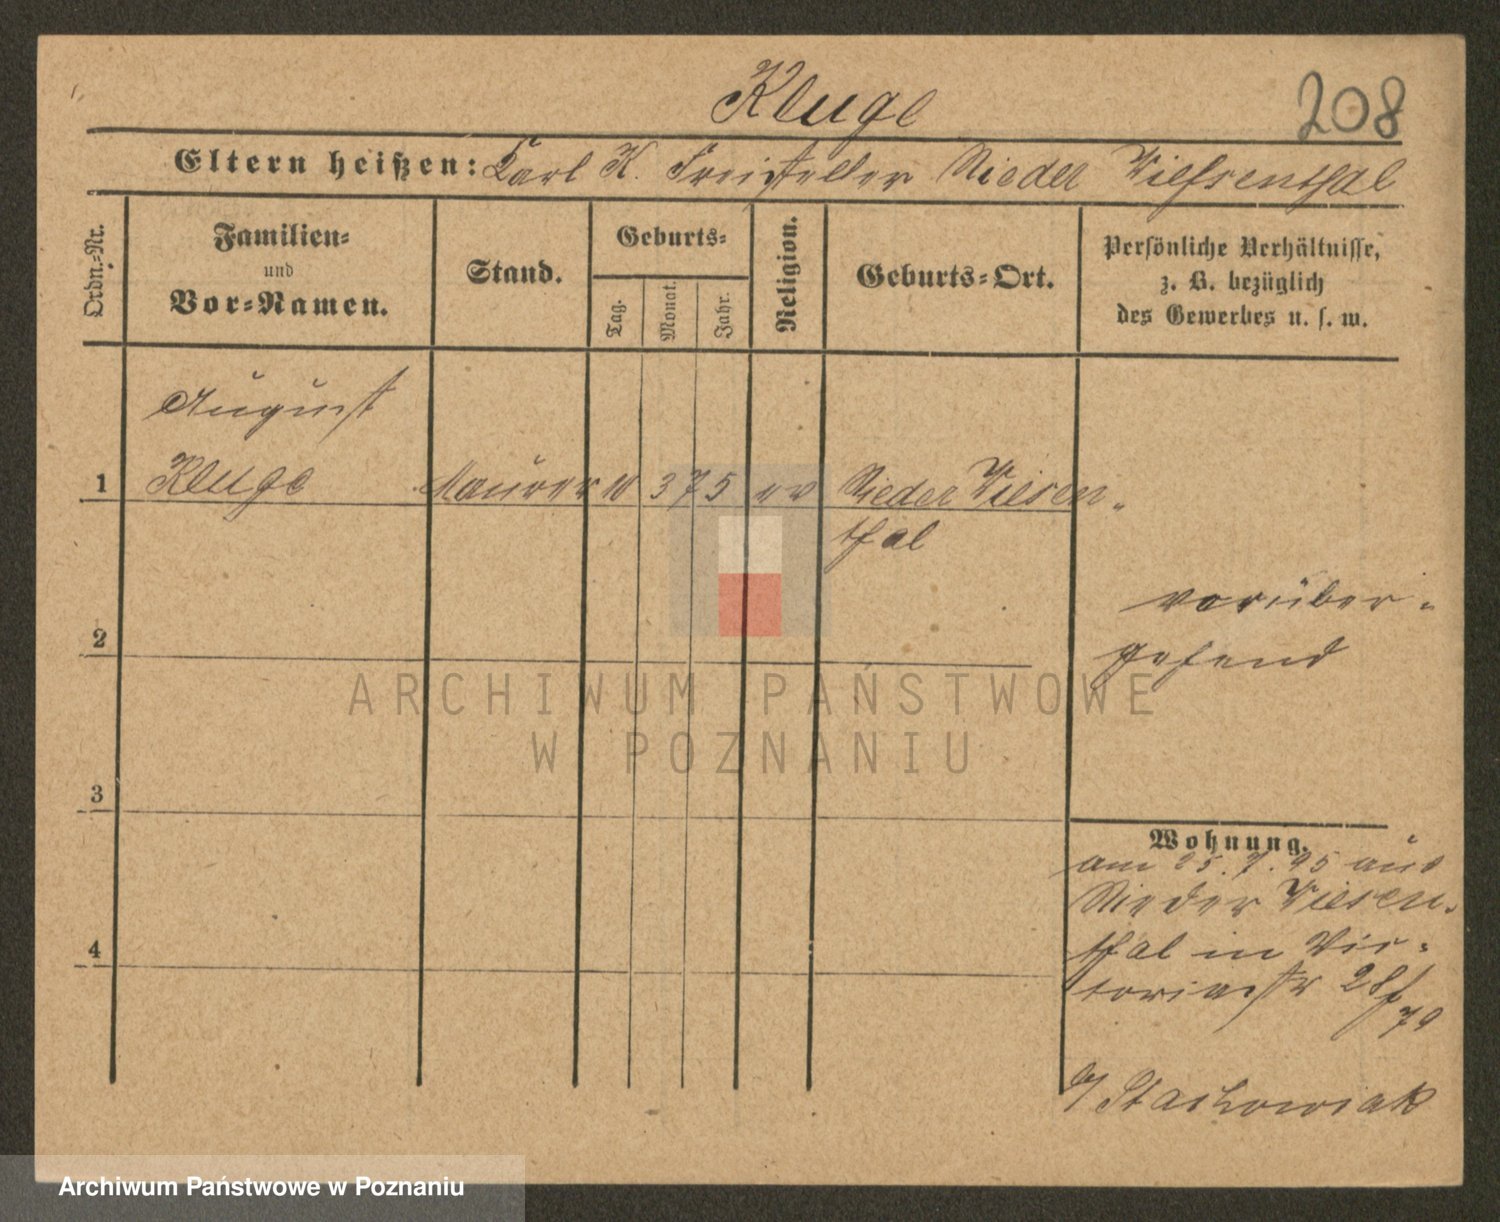 Kluge
208
Eltern heißen: Karl K. Freisteller Nieder Wiesenthal
Ordn.-Nr.
Familien-
und
Vor-Namen.
Stand.
Geburts-
Tag.
Monat.
Jahr.
Religion.
Geburts-Ort.
Persönliche Verhältnisse,
z. B. bezüglich
des Gewerbes u. s. w.
August
1 Kluge Maurer 10 3 75 ev Nieder Wiesen-
thal
vorüber-
gehend
2
3
4
Wohnung.
am 25.7.95 aus
Nieder Wiesen-
thal in Vic-
toriastr 28
79
b/ Stachowiak
ARCHIWUM PAŃSTWOWE
W POZNANIU
Archiwum Państwowe w Poznaniu